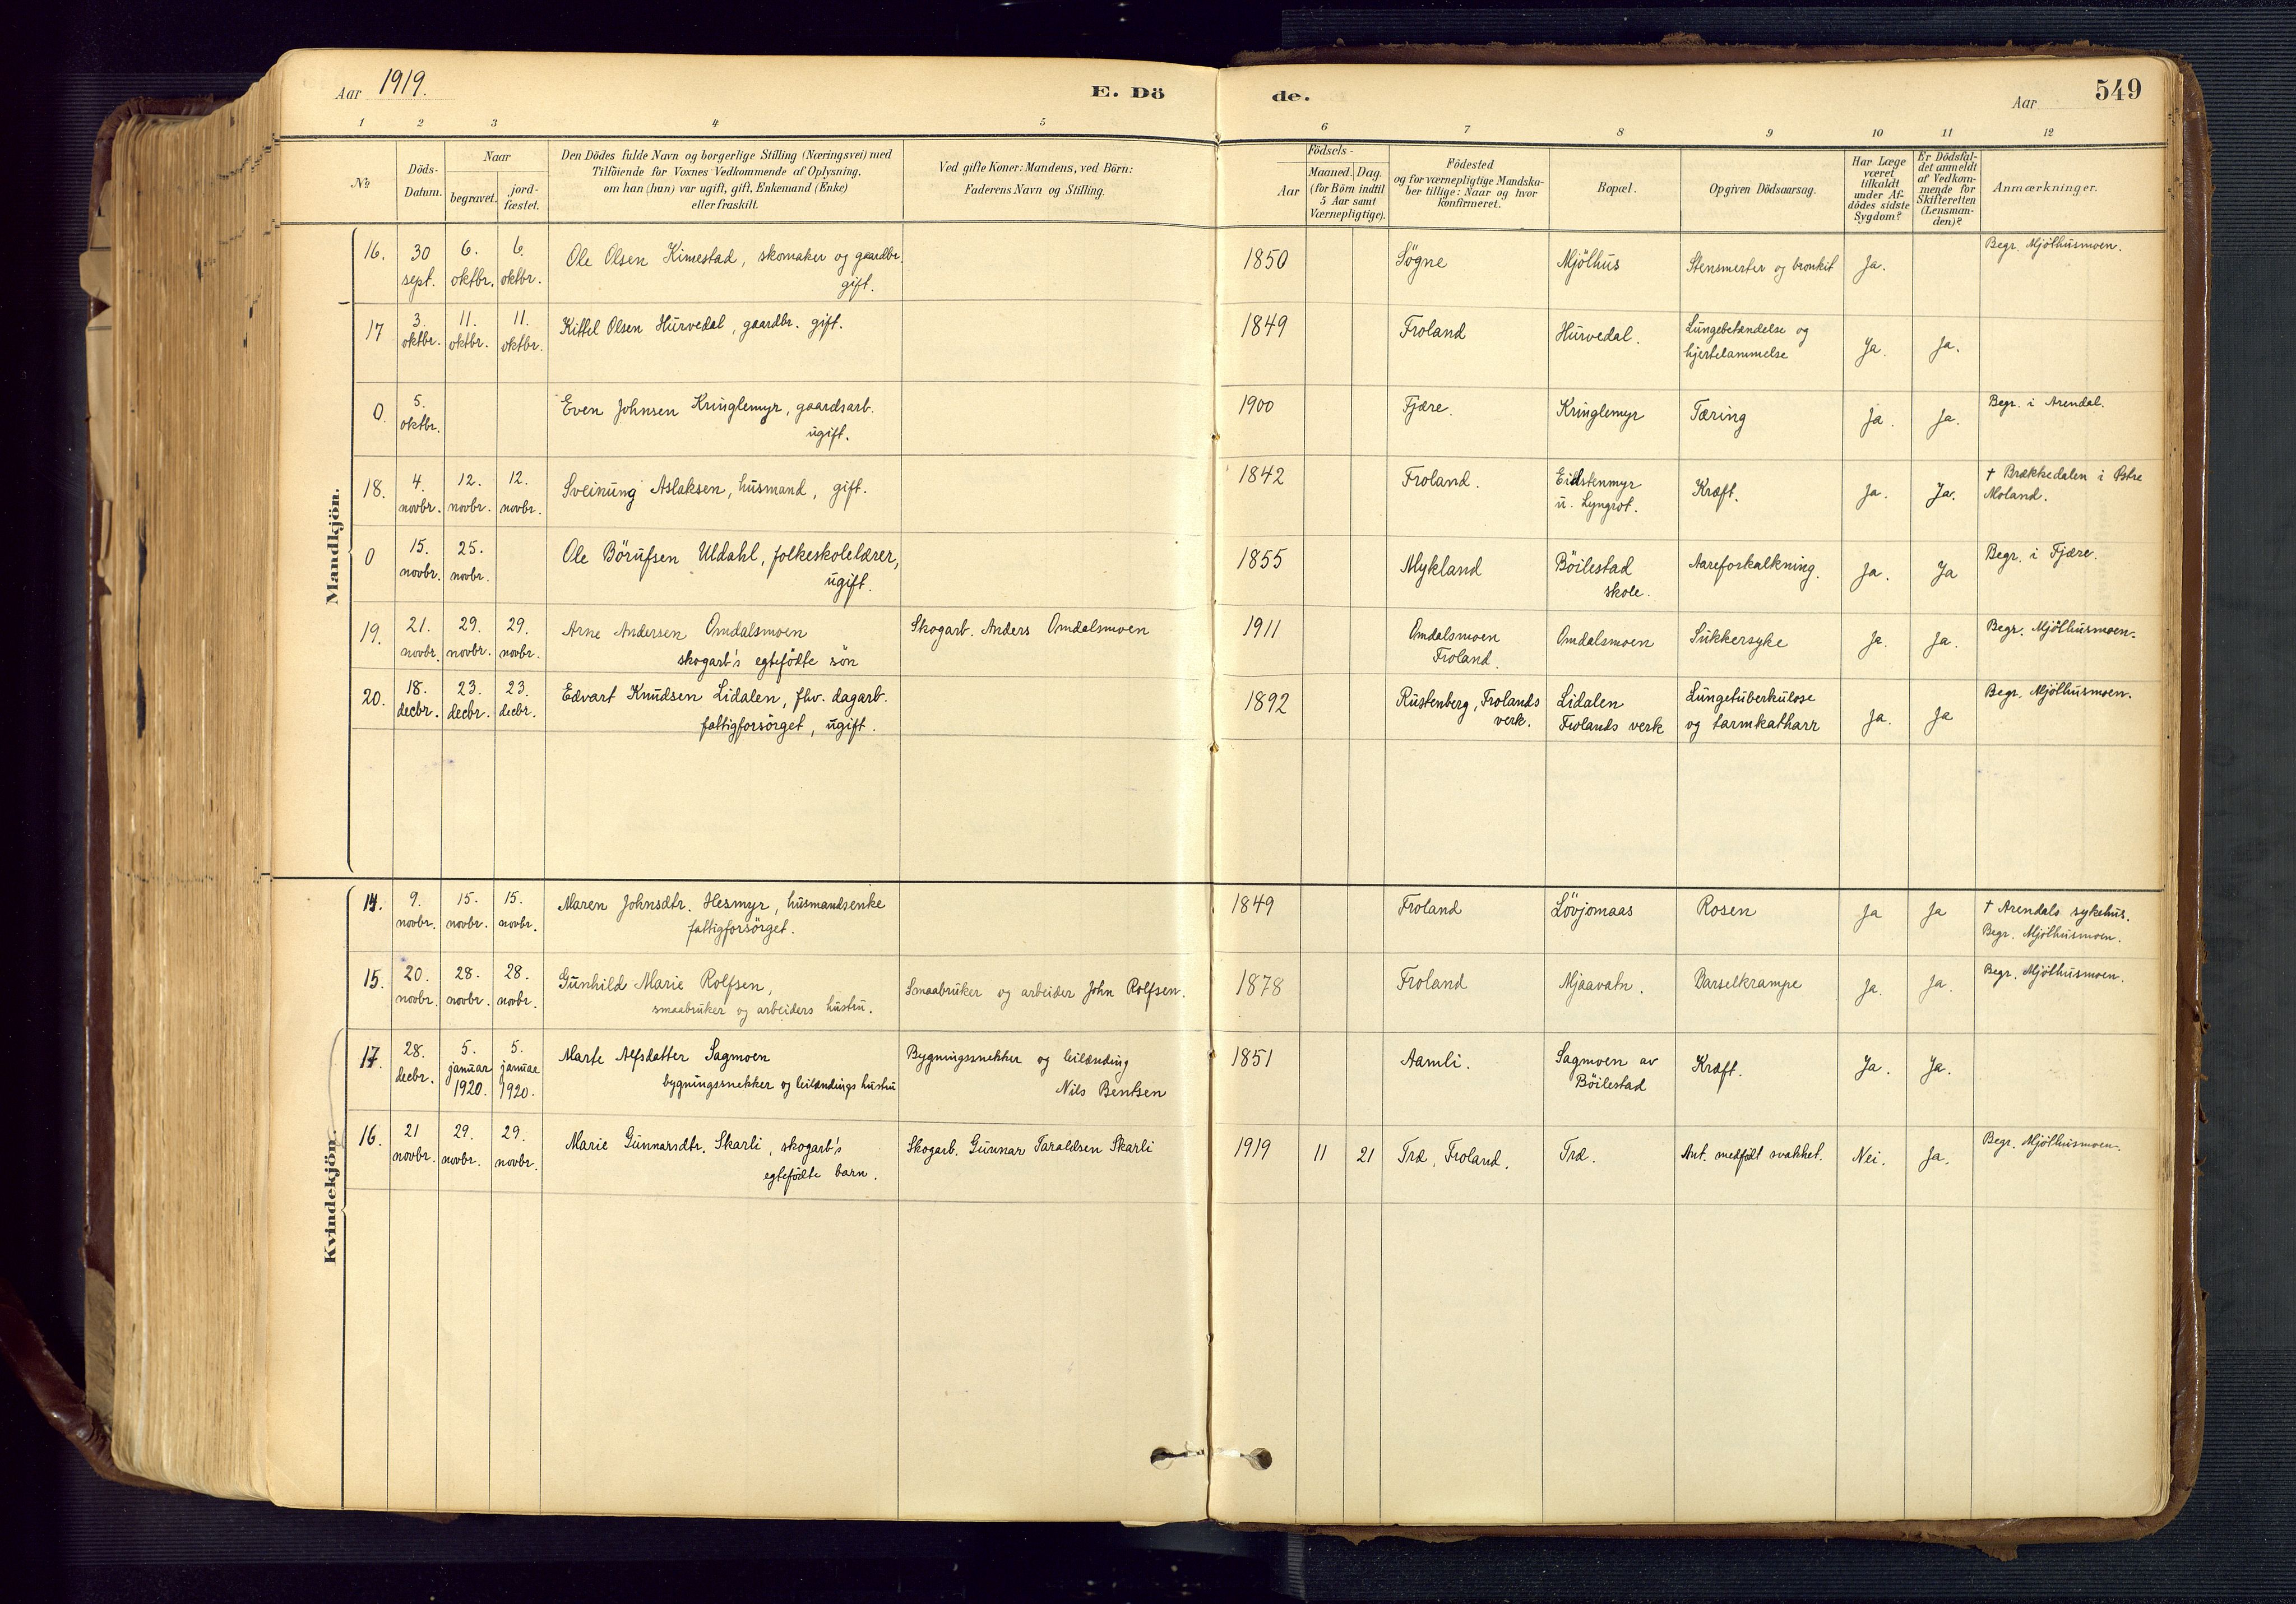 Aar 1919.
E. Dö
de.
Aar
549
1 2 3 4 5 6 7 8 9 10 11 12
No
Döds-
Datum.
Naar
begravet.
jord-
fæstet.
Den Dödes fulde Navn og borgerlige Stilling (Næringsvei) med
Tilföiende for Voxnes Vedkommende af Oplysning,
om han (hun) var ugift, gift, Enkemand (Enke)
eller fraskilt.
Ved gifte Koner: Mandens, ved Börn:
Faderens Navn og Stilling.
Födsels-
Aar
Maaned. Dag.
(for Börn indtil
5 Aar samt
Værnepligtige).
Födested
og for værnepligtige Mandska-
ber tillige: Naar og hvor
konfirmeret.
Bopæl.
Opgiven Dödsaarsag.
Har Læge
været
tilkaldt
under Af-
dödes sidste
Sygdom?
Er Dödsfal-
det anmeldt
af Vedkom-
mende for
Skifteretten
(Lensman-
den)?
Anmærkninger.
Mandkjön.
16. 30 sept. 6. oktbr. 6. oktbr. Ole Olsen Kimestad, skomaker og gaardbr.
gift.
1850 Sögne Mjölhus Stensmerter og bronkit Ja. Begr. Mjölhusmoen.
17 3. oktbr. 11. oktbr. 11. oktbr. Kittel Olsen Hurvedal, gaardbr. gift.
1849 Froland Hurvedal. Lungebetændelse og
hjertelammelse Ja. Ja.
0. 5. oktbr. Even Johnsen Kringlemyr, gaardsarb.
ugift.
1900 Fjære. Kringlemyr Tæring Ja. Ja. Begr. i Arendal.
18. 4. novbr. 12. novbr. 12. novbr. Sveinung Aslaksen, husmand, gift.
1842 Froland. Eidstenmyr
u. Lyngrot. Kræft. Ja. Ja. † Brækkedalen i Østre
Moland.
0 15. novbr. 25. novbr. Ole Börufsen Uldahl, folkeskolelærer,
ugift.
1855 Mykland Böilestad
skole. Aareforkalkning. Ja. Ja Begr. i Fjære.
19. 21. novbr. 29. novbr. 29. novbr. Arne Andersen Omdalsmoen
skogarb's egtefödte sön
Skogarb. Anders Omdalsmoen
1911 Omdalsmoen
Froland. Omdalsmoen Sukkersyke Ja. Ja. Begr. Mjölhusmoen.
20. 18. decbr. 23. decbr. 23. decbr. Edvart Knudsen Lidalen, fhv. dagarb.
fattigforsörget, ugift.
1892 Rustenberg, Frolands
verk. Lidalen
Frolands verk Lungetuberkulose
og tarmkatharr Ja. Ja Begr. Mjölhusmoen.
Kvindekjön.
14. 9. novbr. 15. novbr. 15. novbr. Maren Johnsdtr. Hesmyr, husmandsenke
fattigforsörget.
1849 Froland Lövjomaas Rosen Ja Ja † Arendals sykehus.
Begr. Mjölhusmoen.
15. 20. novbr. 28. novbr. 28. novbr. Gunhild Marie Rolfsen,
smaabruker og arbeiders hustru.
Smaabruker og arbeider John Rolfsen.
1878 Froland Mjaavatn. Barselkrampe Ja. Ja. Begr. Mjölhusmoen.
17. 28. decbr. 5. januar 1920. 5. januar 1920. Marte Alfsdatter Sagmoen
bygningssnekker og leilændings hustru
Bygningssnekker og leilænding
Nils Bentsen
1851 Aamli. Sagmoen av
Böilestad Kræft. Ja. Ja.
16. 21 novbr. 29. novbr. 29. novbr. Marie Gunnarsdtr. Skarli, skogarb's
egtefödte barn.
Skogarb. Gunnar Taraldsen Skarli
1919 11 21 Træ, Froland. Træ. Ant. medfödt svakhet. Nei. Ja. Begr. Mjölhusmoen.